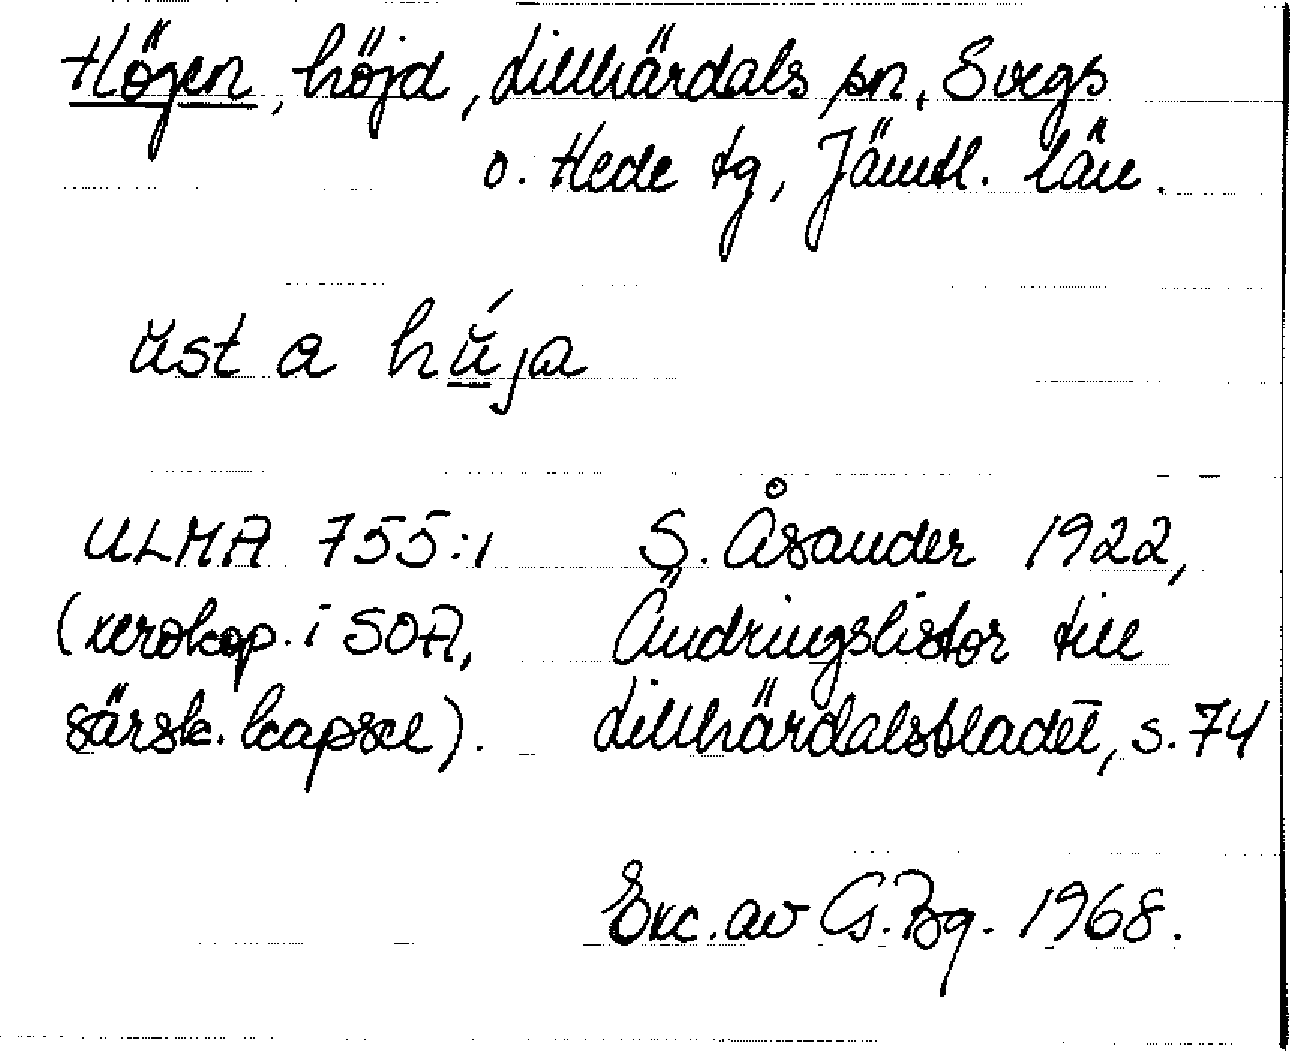 Högen, höjd, Lillhärdals sn, Svegs
o. Hede tg, Jämtl. län.
ŭst a hŭ́ja
ULMA 755:1 S. Åsander 1922,
(xerokop. i SOA, Ändringslistor till
särsk. kapsel). Lillhärdalsbladet, s. 74
Exc. av G. Bg. 1968.